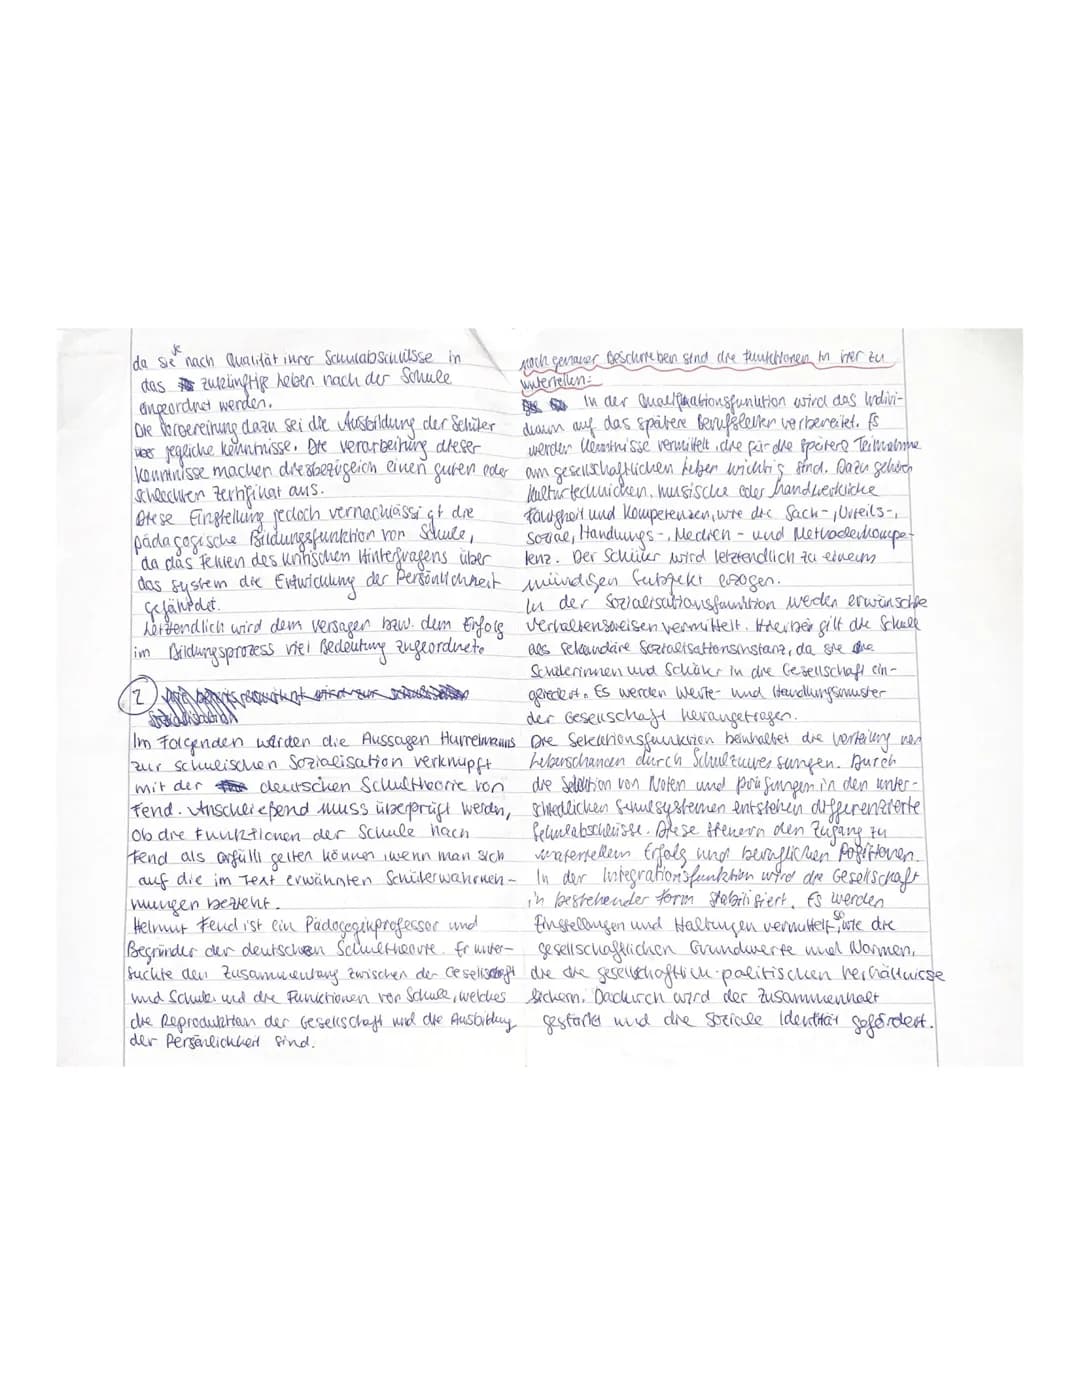 da sie je nach Qualität ihrer Schulabschlüsse in
das zukünftige Leben nach der Schule
eingeordnet werden.
Die Vorbereitung dazu sei die Ausbildung der Schüler
jegliche Kenntnisse. Die Verarbeitung dieser
Kenntnisse machen diesbezügeich einen guten oder
schlechten Zertifikat aus.
Diese Einstellung jedoch vernachlässigt die
pädagogische Bildungsfunktion von Schule,
da das Fehlen des kritischen Hinterfragens über
das System die Entwicklung der Persönlichkeit
gefährdet.
Letztendlich wird dem Versagen bzw. dem Erfolg
im Bildungsprozess viel Bedeutung zugeordnet.
2
Im Folgenden würden die Aussagen Hurrelmanns
zur schulischen Sozialisation verknüpft
mit der deutschen Schultheorie von
Fend. Anschließend muss überprüft werden,
ob die Funktionen der Schule nach
Fend als erfüllt gelten können, wenn man sich
auf die im Text erwähnten Schülerwahrneh-
mungen bezieht.
Helmut Fend ist ein Pädagogikprofessor und
Begründer der deutschen Schultheorie. Er unter-
suchte den Zusammenhang zwischen der Gesellschaft
und Schule und die Funktionen von Schule, welches
die Reproduktion der Gesellschaft und die Ausbildung
der Persönlichkeit sind.
noch genauer beschrieben sind die Funktionen in vier zu
unterteilen:
In der Qualifikationsfunktion wird das Indivi-
duum auf das spätere Berufsleben verbereitet. Es
werden Kenntnisse vermittelt, die für die spätere Teilnahme
am gesellschaftlichen Leben wichtig sind. Dazu gehören
Kulturtechniken, musische oder handwerkliche
Fähigkeit und Kompetenzen, wie die Sach-, Urteils-,
Sozial, Handlungs-, Medien- und Methodenkompe-
tenz. Der Schüler wird letztendlich zu einem
mündigen Subjekt erzogen.
In der Sozialisationsfunktion werden erwünschte
Verhaltensweisen vermittelt. Hierbei gilt die Schule
als sekundäre Sozialisationsinstanz, da sie die
Schülerinnen und Schüler in die Gesellschaft ein-
gliedert. Es werden Werte- und Handlungsmuster
der Gesellschaft herangetragen.
Die Selektionsfunktion beinhaltet die Verteilung von
Lebenschancen durch Schulzuweisungen. Durch
die Selektion von Noten und Prüfungen in den unter-
schiedlichen Schulsystemen entstehen differenzierte
Schulabschlüsse. Diese steuern den Zugang zu
materiellem Erfolg und beruflichen Positionen.
In der Integrationsfunktion wird die Gesellschaft
in bestehender Form stabilisiert. Es werden
Einstellungen und Haltungen vermittelt, so wie die
gesellschaftlichen Grundwerte und Normen,
die die gesellschaftlich-politischen Verhältnisse
sichern. Dadurch wird der Zusammenhalt
gestärkt und die soziale Identität gefördert.